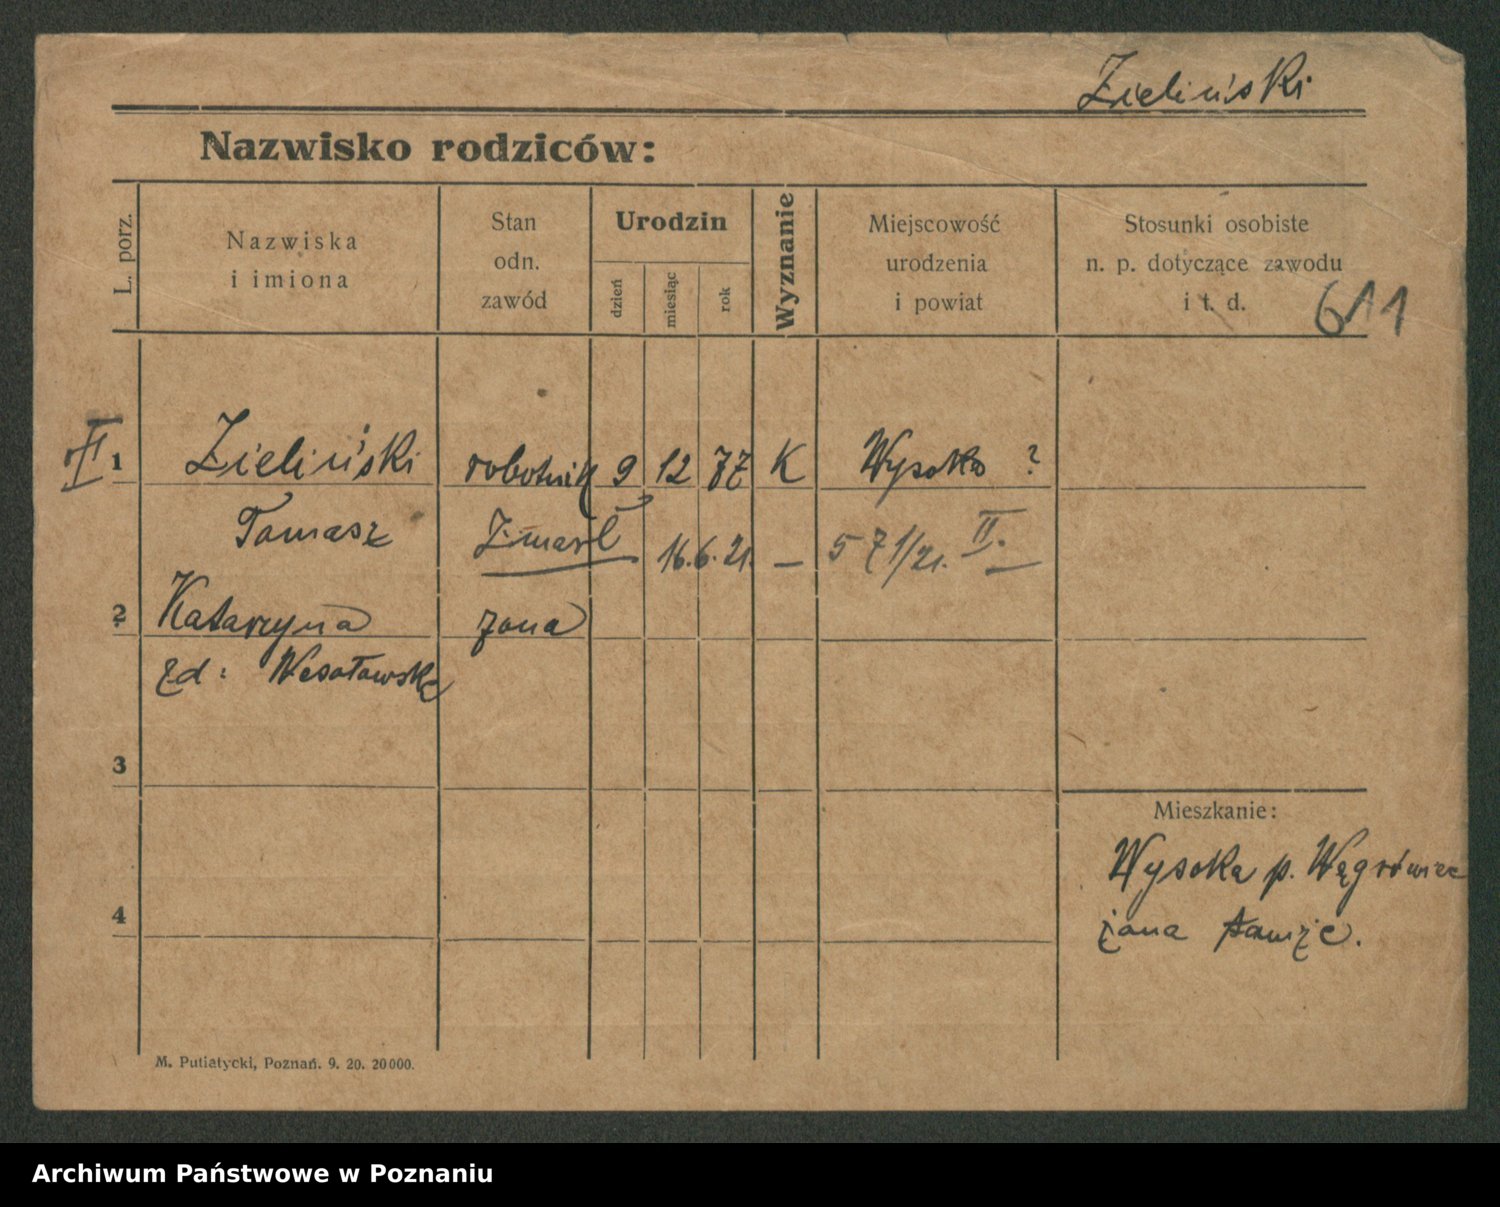 Zieliński
Nazwisko rodziców:
L. porz.
Nazwiska
i imiona
Stan
odn.
zawód
Urodzin
dzień
miesiąc
rok
Wyznanie
Miejscowość
urodzenia
i powiat
Stosunki osobiste
n. p. dotyczące zawodu
i t. d.
611
II
1 Zieliński robotnik 9 12 77 K Wysoka ?
Tomasz Zmarł 16. 6. 21. — 571/21. II.
2 Katarzyna żona
zd: Wesołowska
3
Mieszkanie:
Wysoka p. Wągrówiec
4
żona tamże.
M. Putiatycki, Poznań. 9. 20. 20000.
Archiwum Państwowe w Poznaniu